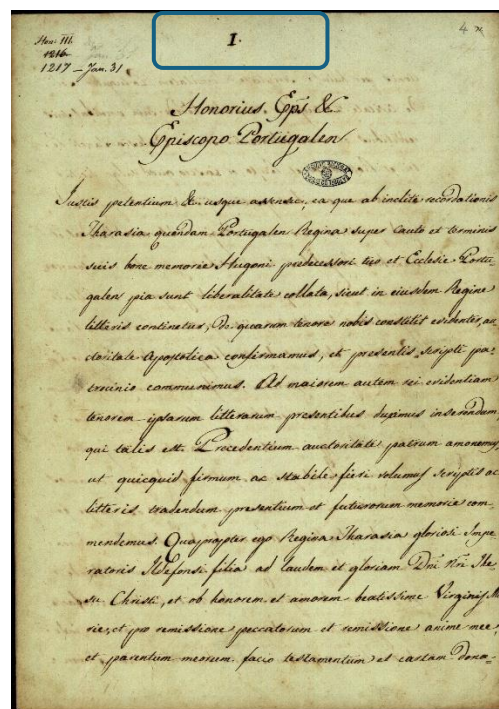 Hon. III.
1216
1217 – Jan. 31
I.
4
Honorius Eps &
Episcopo Portugalen
Justis petentium &c. usque assensu, ea que ab inclite recordationis
Tharasia quondam Portugalen Regina super Cauto et terminis
suis bone memorie Hugoni predecessori tuo et Ecclesie Portu
galen pia sunt liberalitate collata, sicut in eiusdem Regine
litteris continetur, de quarum tenore nobis constitit evidenter, au
ctoritate Apostolica confirmamus, et presentis scripti pa
trocinio communimus. Ad maiorem autem rei evidentiam
tenorem ipsarum litterarum presentibus duximus inserendum
qui talis est. Precedentium auctoritate patrum amonemur
ut quicquid firmum ac stabile fieri volumus scriptis ac
litteris tradendum presentium et futurorum memorie com
mendemus. Quapropter ego Regina Tharasia gloriosi Impe
ratoris Ildefonsi filia ad laudem et gloriam Dni nri Ihe
su Christi, et ob honorem et amorem beatissime Virginis Ma
rie, et pro remissione peccatorum et remissione anime mee,
et parentum meorum facio testamentum et cartam dona-